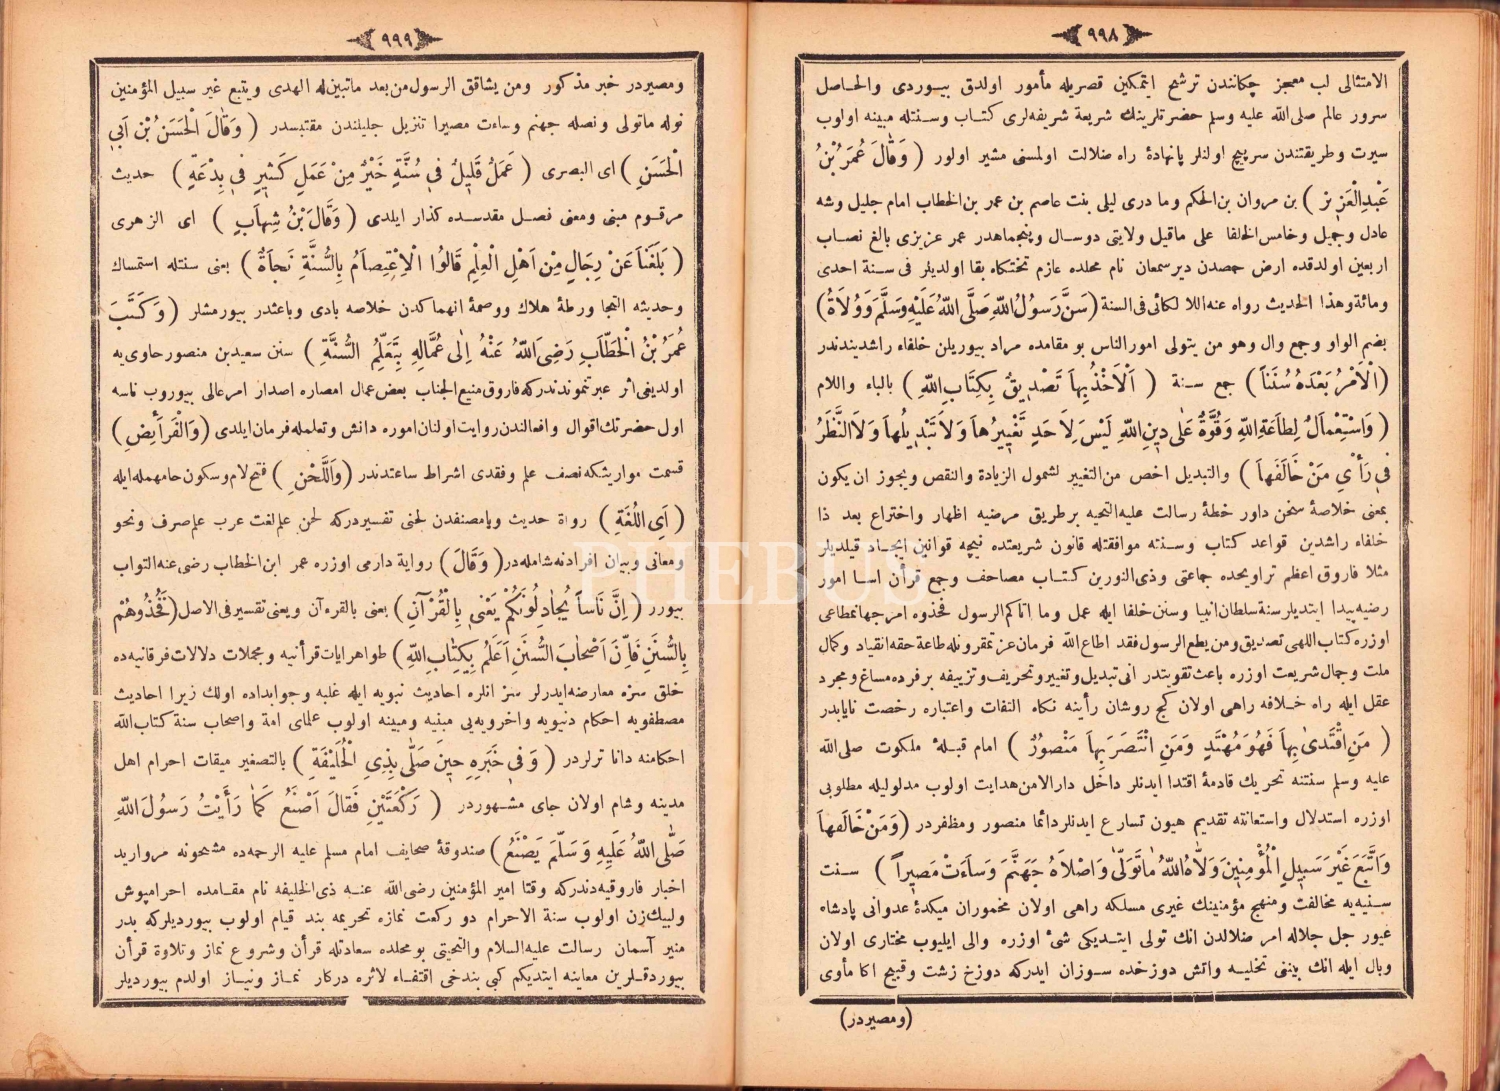 ٩٩٨
الامتثالى لب معجز چكانندن ترشح ايتمكين قصريله مأمور اولدق بيوردى والحاصل
سرور عالم صلى الله عليه وسلم حضرتلرينك شريعة شريفه‌لرى كتاب وسنتله مبينه اولوب
سيرت وطريقتندن سرپيچ اولنلر پانهادۀ راه ضلالت اولمسنى مشير اولور ( وَقَالَ عُمَرُ بْنُ
عَبْدِ الْعَزِيزِ ) بن مروان بن الحكم وما درى ليلى بنت عاصم بن عمر بن الخطاب امام جليل وشه
عادل وجميل وخامس الخلفا على ماقيل ولايتى دوسال وپنجماهدر عمر عزيزى بالغ نصاب
اربعين اولدقده ارض حمصدن دير سمعان نام محلده عازم تختكاه بقا اولديلر فى سنة احدى
ومائة وهذا الحديث رواه عنه اللالكائى فى السنة ( سَنَّ رَسُولُ اللهِ صَلَّى اللهُ عَلَيْهِ وَسَلَّمَ وَوُلَاةُ )
بضم الواو وجمع وال وهو من يتولى امور الناس بو مقامده مراد بيوريلن خلفاء راشديندندر
( الْاَمْرِ بَعْدَهُ سُنَنًا ) جمع سنة ( اَلْاَخْذُ بِهَا تَصْدِيقٌ بِكِتَابِ اللهِ ) بالباء واللام
( وَاسْتِعْمَالٌ لِطَاعَةِ اللهِ وَقُوَّةٌ عَلَى دِينِ اللهِ لَيْسَ لِاَحَدٍ تَغْيِيرُهَا وَلَا تَبْدِيلُهَا وَلَا النَّظَرُ
فِى رَأْىِ مَنْ خَالَفَهَا ) والتبديل اخص من التغيير لشمول الزيادة والنقص ويجوز ان يكون
بمعنى خلاصۀ سخن داور خطۀ رسالت عليه التحيه بر طريق مرضيه اظهار واختراع بعد ذا
خلفاء راشدين قواعد كتاب وسنته موافقتله قانون شريعتده نيچه قوانين ايجاد قيلديلر
مثلا فاروق اعظم تراويحده جماعتى وذى النورين كتاب مصاحف وجمع قرأن اسا امور
رضيه پيدا ايتديلر سنة سلطان انبيا وسنن خلفا ايله عمل وما اتاكم الرسول فخذوه امر جهانمطاعى
اوزره كتاب اللهى تصديق ومن يطع الرسول فقد اطاع الله فرمان عزتمقرونله طاعة حقه انقياد وكمال
ملت وجمال شريعت اوزره باعث تقويتدر انى تبديل وتغيير وتحريف وتزييفه بر فرده مساغ ومجرد
عقل ايله راه خلافه راهى اولان كج روشان رأينه نكاه التفات واعتباره رخصت ناياب‌در
( مَنِ اقْتَدَى بِهَا فَهُوَ مُهْتَدٍ وَمَنِ انْتَصَرَ بِهَا مَنْصُورٌ ) امام قبلۀ ملكوت صلى الله
عليه وسلم سنتنه تحريك قادمۀ اقتدا ايدنلر داخل دار الامن هدايت اولوب مدلوليله مطلوبى
اوزره استدلال واستعانته تقديم هيون تسارع ايدنلر دائما منصور ومظفردر ( وَمَنْ خَالَفَهَا
وَاتَّبَعَ غَيْرَ سَبِيلِ الْمُؤْمِنِينَ وَلَّاهُ اللهُ مَا تَوَلَّى وَاَصْلَاهُ جَهَنَّمَ وَسَاءَتْ مَصِيرًا ) سنت
سنيه‌يه مخالفت ومنهج مؤمنينك غيرى مسلكه راهى اولان مخموران ميكدۀ عدوانى پادشاه
غيور جل جلاله امر ضلالدن انك تولى ايتديكى شئ اوزره والى ايليوب مختارى اولان
وبال ايله انك بيننى تخليه واتش دوزخده سوزان ايدركه دوزخ زشت وقبيح اكا مأوى
(ومصيردر)
٩٩٩
ومصيردر خبر مذكور ومن يشاقق الرسول من بعد ماتبين له الهدى ويتبع غير سبيل المؤمنين
نوله ماتولى ونصله جهنم وساءت مصيرا تنزيل جليلندن مقتبسدر ( وَقَالَ الْحَسَنُ بْنُ اَبِى
الْحَسَنِ ) اى البصرى ( عَمَلٌ قَلِيلٌ فِى سُنَّةٍ خَيْرٌ مِنْ عَمَلٍ كَثِيرٍ فِى بِدْعَةٍ ) حديث
مرقوم مبنى ومعنى فصل مقدسده كذار ايلدى ( وَقَالَ بْنُ شِهَابٍ ) اى الزهرى
( بَلَغَنَا عَنْ رِجَالٍ مِنْ اَهْلِ الْعِلْمِ قَالُوا الْاِعْتِصَامُ بِالسُّنَّةِ نَجَاةٌ ) يعنى سنتله استمساك
وحديثه التجا ورطۀ هلاك ووصمۀ انهماكدن خلاصه بادى وباعثدر بيورمشلر ( وَكَتَبَ
عُمَرُ بْنُ الْخَطَّابِ رَضِىَ اللهُ عَنْهُ اِلَى عُمَّالِهِ بِتَعَلُّمِ السُّنَّةِ ) سنن سعيد بن منصور حاوى‌يه
اولديغى اثر عبرتنموندندركه فاروق منيع الجناب بعض عمال امصاره اصدار امر عالى بيوروب ناسه
اول حضرتك اقوال وافعالندن روايت اولنان اموره دانش وتعلمله فرمان ايلدى ( وَالْفَرَائِضِ )
قسمت مواريثكه نصف علم وفقدى اشراط ساعتدندر ( وَاللَّحْنِ ) فتح لام وسكون حا مهمله ايله
( اَىِ اللُّغَةِ ) رواة حديث ويا مصنفدن لحنى تفسيردركه لحن علم لغت عرب علم صرف ونحو
ومعانى وبيان افرادنه شامله‌در ( وَقَالَ ) رواية دارمى اوزره عمر ابن الخطاب رضى عنه التواب
بيورر ( اِنَّ نَاسًا يُجَادِلُونَكُمْ يَعْنِى بِالْقُرْآنِ ) يعنى بالقرءآن ويعنى تفسير فى الاصل ( فَخُذُوهُمْ
بِالسُّنَنِ فَاِنَّ اَصْحَابَ السُّنَنِ اَعْلَمُ بِكِتَابِ اللهِ ) ظواهر ايات قرأنيه ومجملات دلالات فرقانيه‌ده
خلق سزه معارضه ايدرلر سز انلره احاديث نبويه ايله غلبه وجوابداده اولك زيرا احاديث
مصطفويه احكام دنيويه واخرويه‌يى مبنيه ومبينه اولوب علماى امة واصحاب سنة كتاب الله
احكامنه دانا ترلردر ( وَفِى خَبَرِهِ حِينَ صَلَّى بِذِى الْحُلَيْفَةِ ) بالتصغير ميقات احرام اهل
مدينه وشام اولان جاى مشهوردر ( رَكْعَتَيْنِ فَقَالَ اَصْنَعُ كَمَا رَأَيْتُ رَسُولَ اللهِ
صَلَّى اللهُ عَلَيْهِ وَسَلَّمَ يَصْنَعُ ) صندوقۀ صحايف امام مسلم عليه الرحمه‌ده مشحونه مرواريد
اخبار فاروقيه‌دندركه وقتا امير المؤمنين رضى الله عنه ذى الحليفه نام مقامده احرامپوش
ولبيك زن اولوب سنة الاحرام دو ركعت نمازه تحريمه بند قيام اولوب بيورديلركه بدر
منير آسمان رسالت عليه السلام والتحيتى بو محلده سعادتله قرأن وشروع نماز وتلاوة قرأن
بيوردقلرين معاينه ايتديكم كبى بندخى اقتفاء لاثره دركار نماز ونياز اولدم بيورديلر
PHEBUS